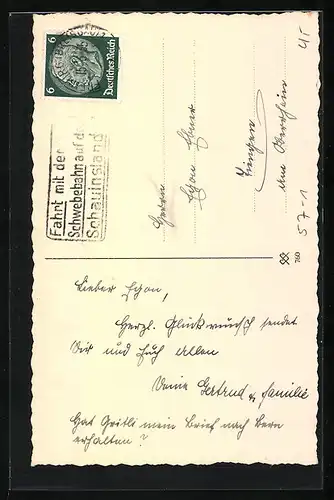 6 6
Deutsches Reich
Fahrt mit der
Schwebebahn auf d.
Schauinsland
Herrn
Egon
am Oberrhein
57-1
760
Lieber Egon,
Herzl. Glückwunsch sendet
Dir und Euch allen
Deine Gertrud u. Familie
Hat Gritli mein Brief nach Bern
erhalten?